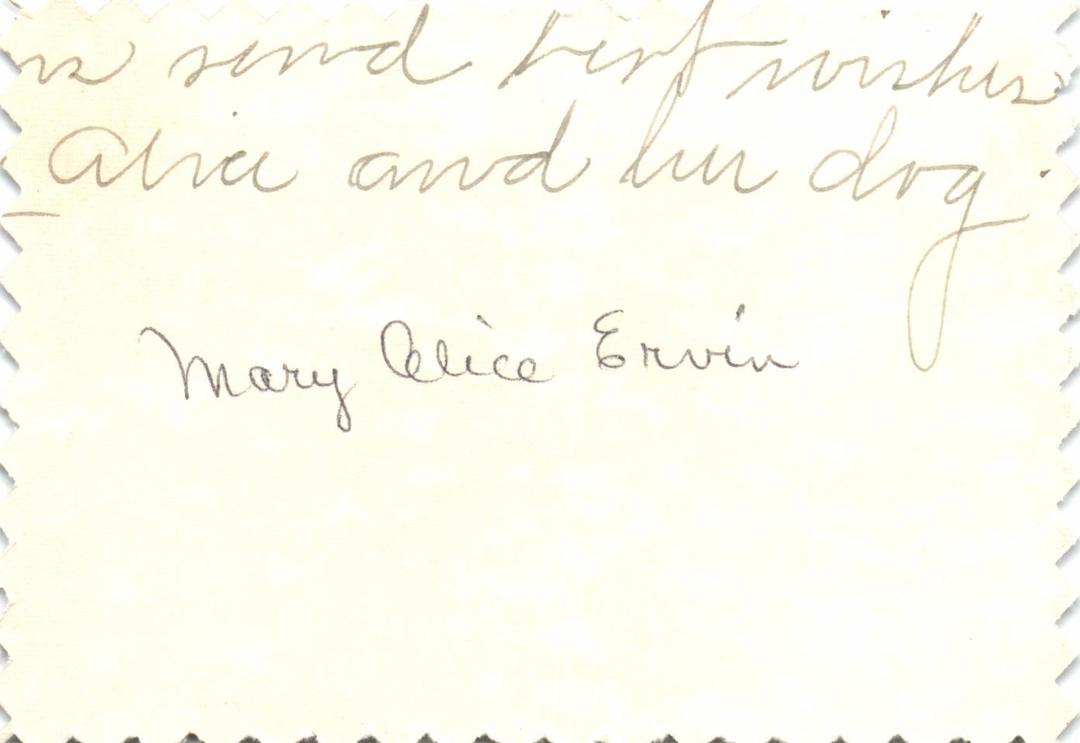 send best wishes
Alice and her dog.
Mary Alice Ervin